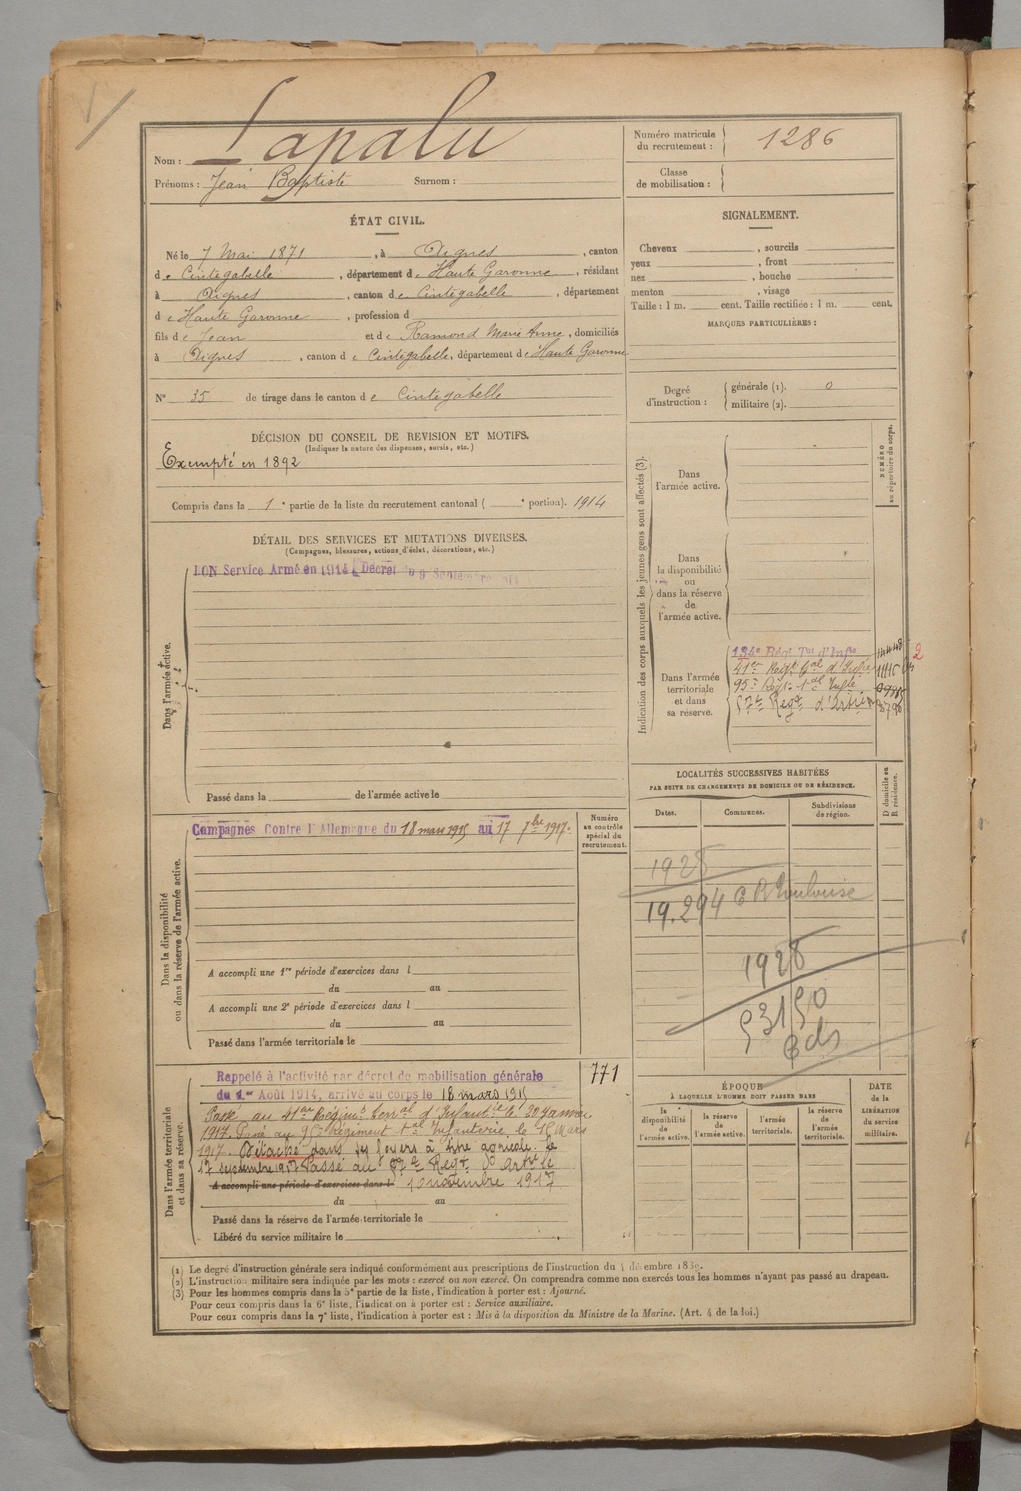 Nom : Lapalu
Prénoms : Jean Baptiste Surnom :
Numéro matricule du recrutement : 1286
Classe de mobilisation :
ÉTAT CIVIL.
Né le 7 Mai 1871, à Aignes, canton
de Cintegabelle, département de Haute Garonne, résidant
à Aignes, canton de Cintegabelle, département
de Haute Garonne, profession d
fils de Jean et de Ramond Marie Anne, domiciliés
à Aignes, canton de Cintegabelle, département de Haute Garonne
N° 35 de tirage dans le canton de Cintegabelle
DÉCISION DU CONSEIL DE REVISION ET MOTIFS.
(Indiquer la nature des dispenses, sursis, etc.)
Exempté en 1892
Compris dans la 1e partie de la liste du recrutement cantonal ( e portion). 1914
SIGNALEMENT.
Cheveux , sourcils
yeux , front
nez , bouche
menton , visage
Taille : 1 m. cent. Taille rectifiée : 1 m. cent.
MARQUES PARTICULIÈRES :
Degré d'instruction : générale (1). 0
militaire (2).
DÉTAIL DES SERVICES ET MUTATIONS DIVERSES.
(Campagnes, blessures, actions d'éclat, décorations, etc.)
Dans l'armée active.
BON Service Armé en 1914 Décret du 9 Septembre
Passé dans la de l'armée active le
Indication des corps auxquels les jeunes gens sont affectés (3).
NUMÉRO au répertoire du corps.
Dans l'armée active.
Dans la disponibilité ou dans la réserve de l'armée active.
Dans l'armée territoriale et dans sa réserve.
134e Régt Tal d'Infie
41er Régt Tal d'Infie
95e Régt Tal Infie
57e Regt d'Artie
2
LOCALITÉS SUCCESSIVES HABITÉES
PAR SUITE DE CHANGEMENTS DE DOMICILE OU DE RÉSIDENCE.
Dates. Communes. Subdivisions de région. D domicile ou R résidence.
1928
19.294 Toulouse
1928
53150
Dans la disponibilité ou dans la réserve de l'armée active.
Numéro au contrôle spécial du recrutement.
Campagnes Contre l'Allemagne du 18 mars 1915 au 17 7bre 1917.
A accompli une 1re période d'exercices dans l
du au
A accompli une 2e période d'exercices dans l
du au
Passé dans l'armée territoriale le
Dans l'armée territoriale et dans sa réserve.
771
Rappelé à l'activité par décret de mobilisation générale
du 1er Août 1914, arrivé au corps le 18 mars 1915
Passé au 41e Régimt Terral d'Infantie le 20 Janvier
1917. Passé au 95e Régiment Tal Infanterie le 15 Mars
1917. Détaché dans ses foyers à titre agricole le
17 septembre 1917 Passé au 57e Regt d'Artie le
A accompli une période d'exercices dans l 10 novembre 1917
du au
Passé dans la réserve de l'armée territoriale le
Libéré du service militaire le
ÉPOQUE
À LAQUELLE L'HOMME DOIT PASSER DANS
la disponibilité de l'armée active.
la réserve de l'armée active.
l'armée territoriale.
la réserve de l'armée territoriale.
DATE de la LIBÉRATION du service militaire.
(1) Le degré d'instruction générale sera indiqué conformément aux prescriptions de l'instruction du 4 décembre 1889.
(2) L'instruction militaire sera indiquée par les mots : exercé ou non exercé. On comprendra comme non exercés tous les hommes n'ayant pas passé au drapeau.
(3) Pour les hommes compris dans la 5e partie de la liste, l'indication à porter est : Ajourné.
Pour ceux compris dans la 6e liste, l'indication à porter est : Service auxiliaire.
Pour ceux compris dans la 7e liste, l'indication à porter est : Mis à la disposition du Ministre de la Marine. (Art. 4 de la loi.)